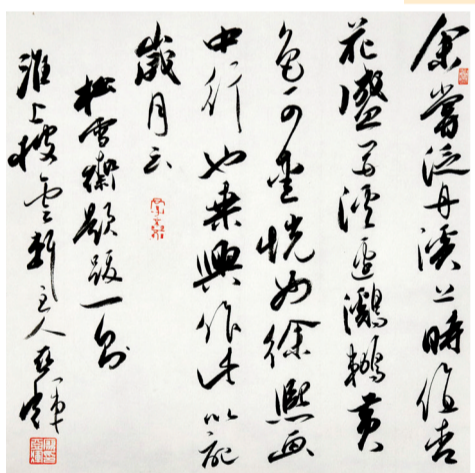 余嘗泛舟溪上時值杏
花盛開溪邊鸂鶒黃
色可愛恍如徐熙画
中行也乘興作此以記
歲月云
松雪齋題跋一則
淮上披雲軒主人